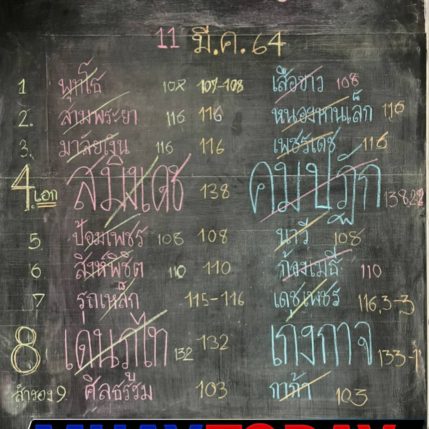 11 มี.ค.64
1 พุทโธ 108 107-108 เสือขาว 108
2. สามพระยา 116 116 หนองทานเล็ก 116
3. มาลัยเงิน 116 116 เพชรเดช 116
4.เอก สมิงเดช 138 คมปฏัก 138
5 ป้อมเพชร 108 108 นาวี 108
6 สิงห์พิชิต 110 110 ก้องเมธี 110
7 รุถเหล็ก 115-116 เดชเพชร 116,3-3
8 เดนภูไท 132 132 เกงกาจ 133-1
สำรอง 9 ศีลธรรม 103 กาก้า 103
MUAYTODAY